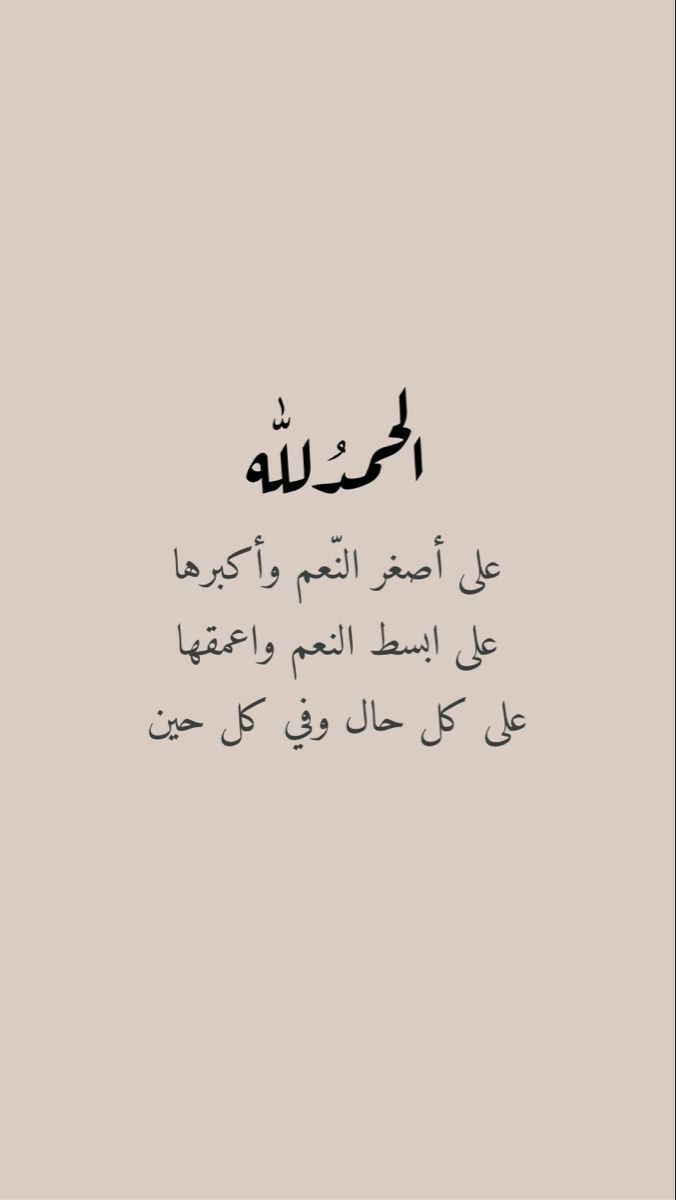 الحمدُ لله
على أصغر النّعم وأكبرها
على ابسط النعم واعمقها
على كل حال وفي كل حين